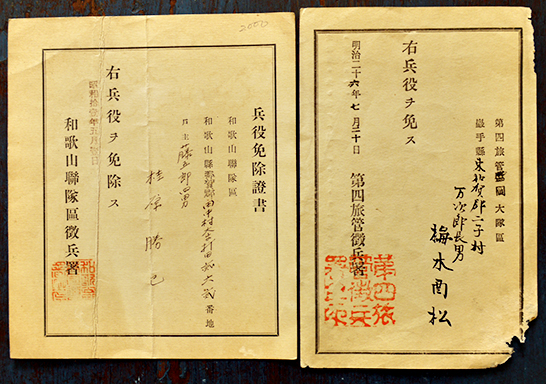 兵役免除證書
和歌山聯隊區
和歌山縣那賀郡田中村大字打田 番地
戸主藤五郎四男
桂 勝
右兵役ヲ免除ス
昭和拾 年五月 日
和歌山聯隊區徴兵署
第四旅管 大隊區
巖手縣東和賀郡二子村
万次郎長男
梅木酉松
右兵役ヲ免ス
明治二十六年七月三十日
第四旅管徴兵署
第四旅管徴兵署之印